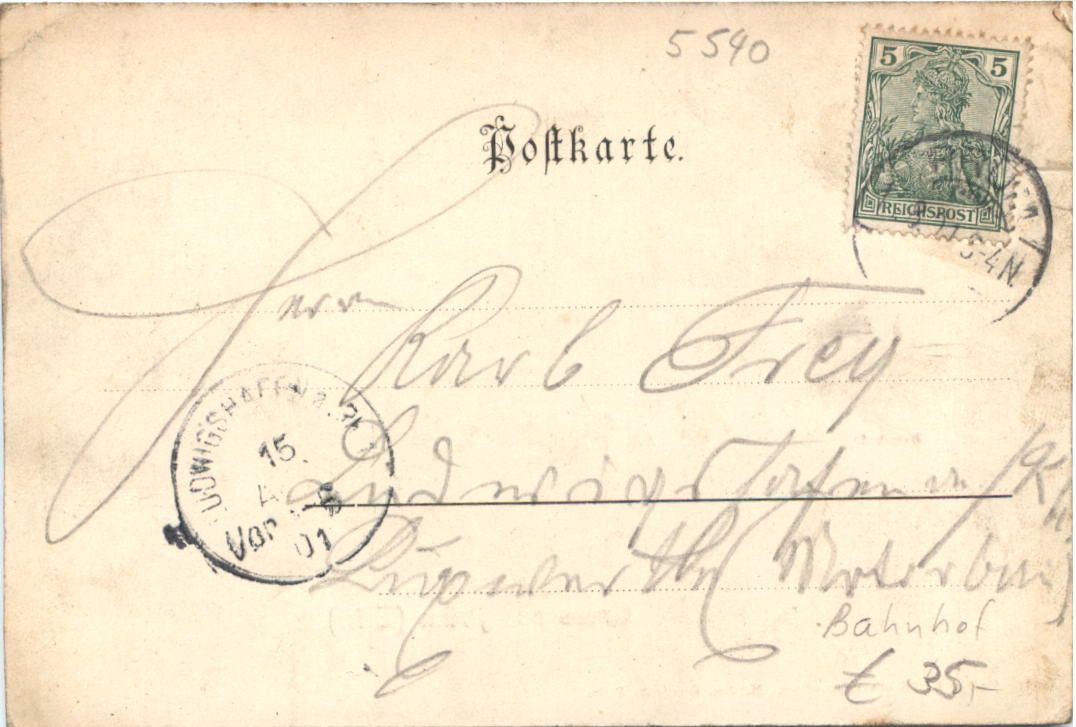 5540
5 5
REICHSPOST
Postkarte.
3-4N.
Herrn
Karl Frey
Ludwigshafen a/Rh.
LUDWIGSHAFEN a. RH.
15
Vor
01
Bahnhof
€ 35,-